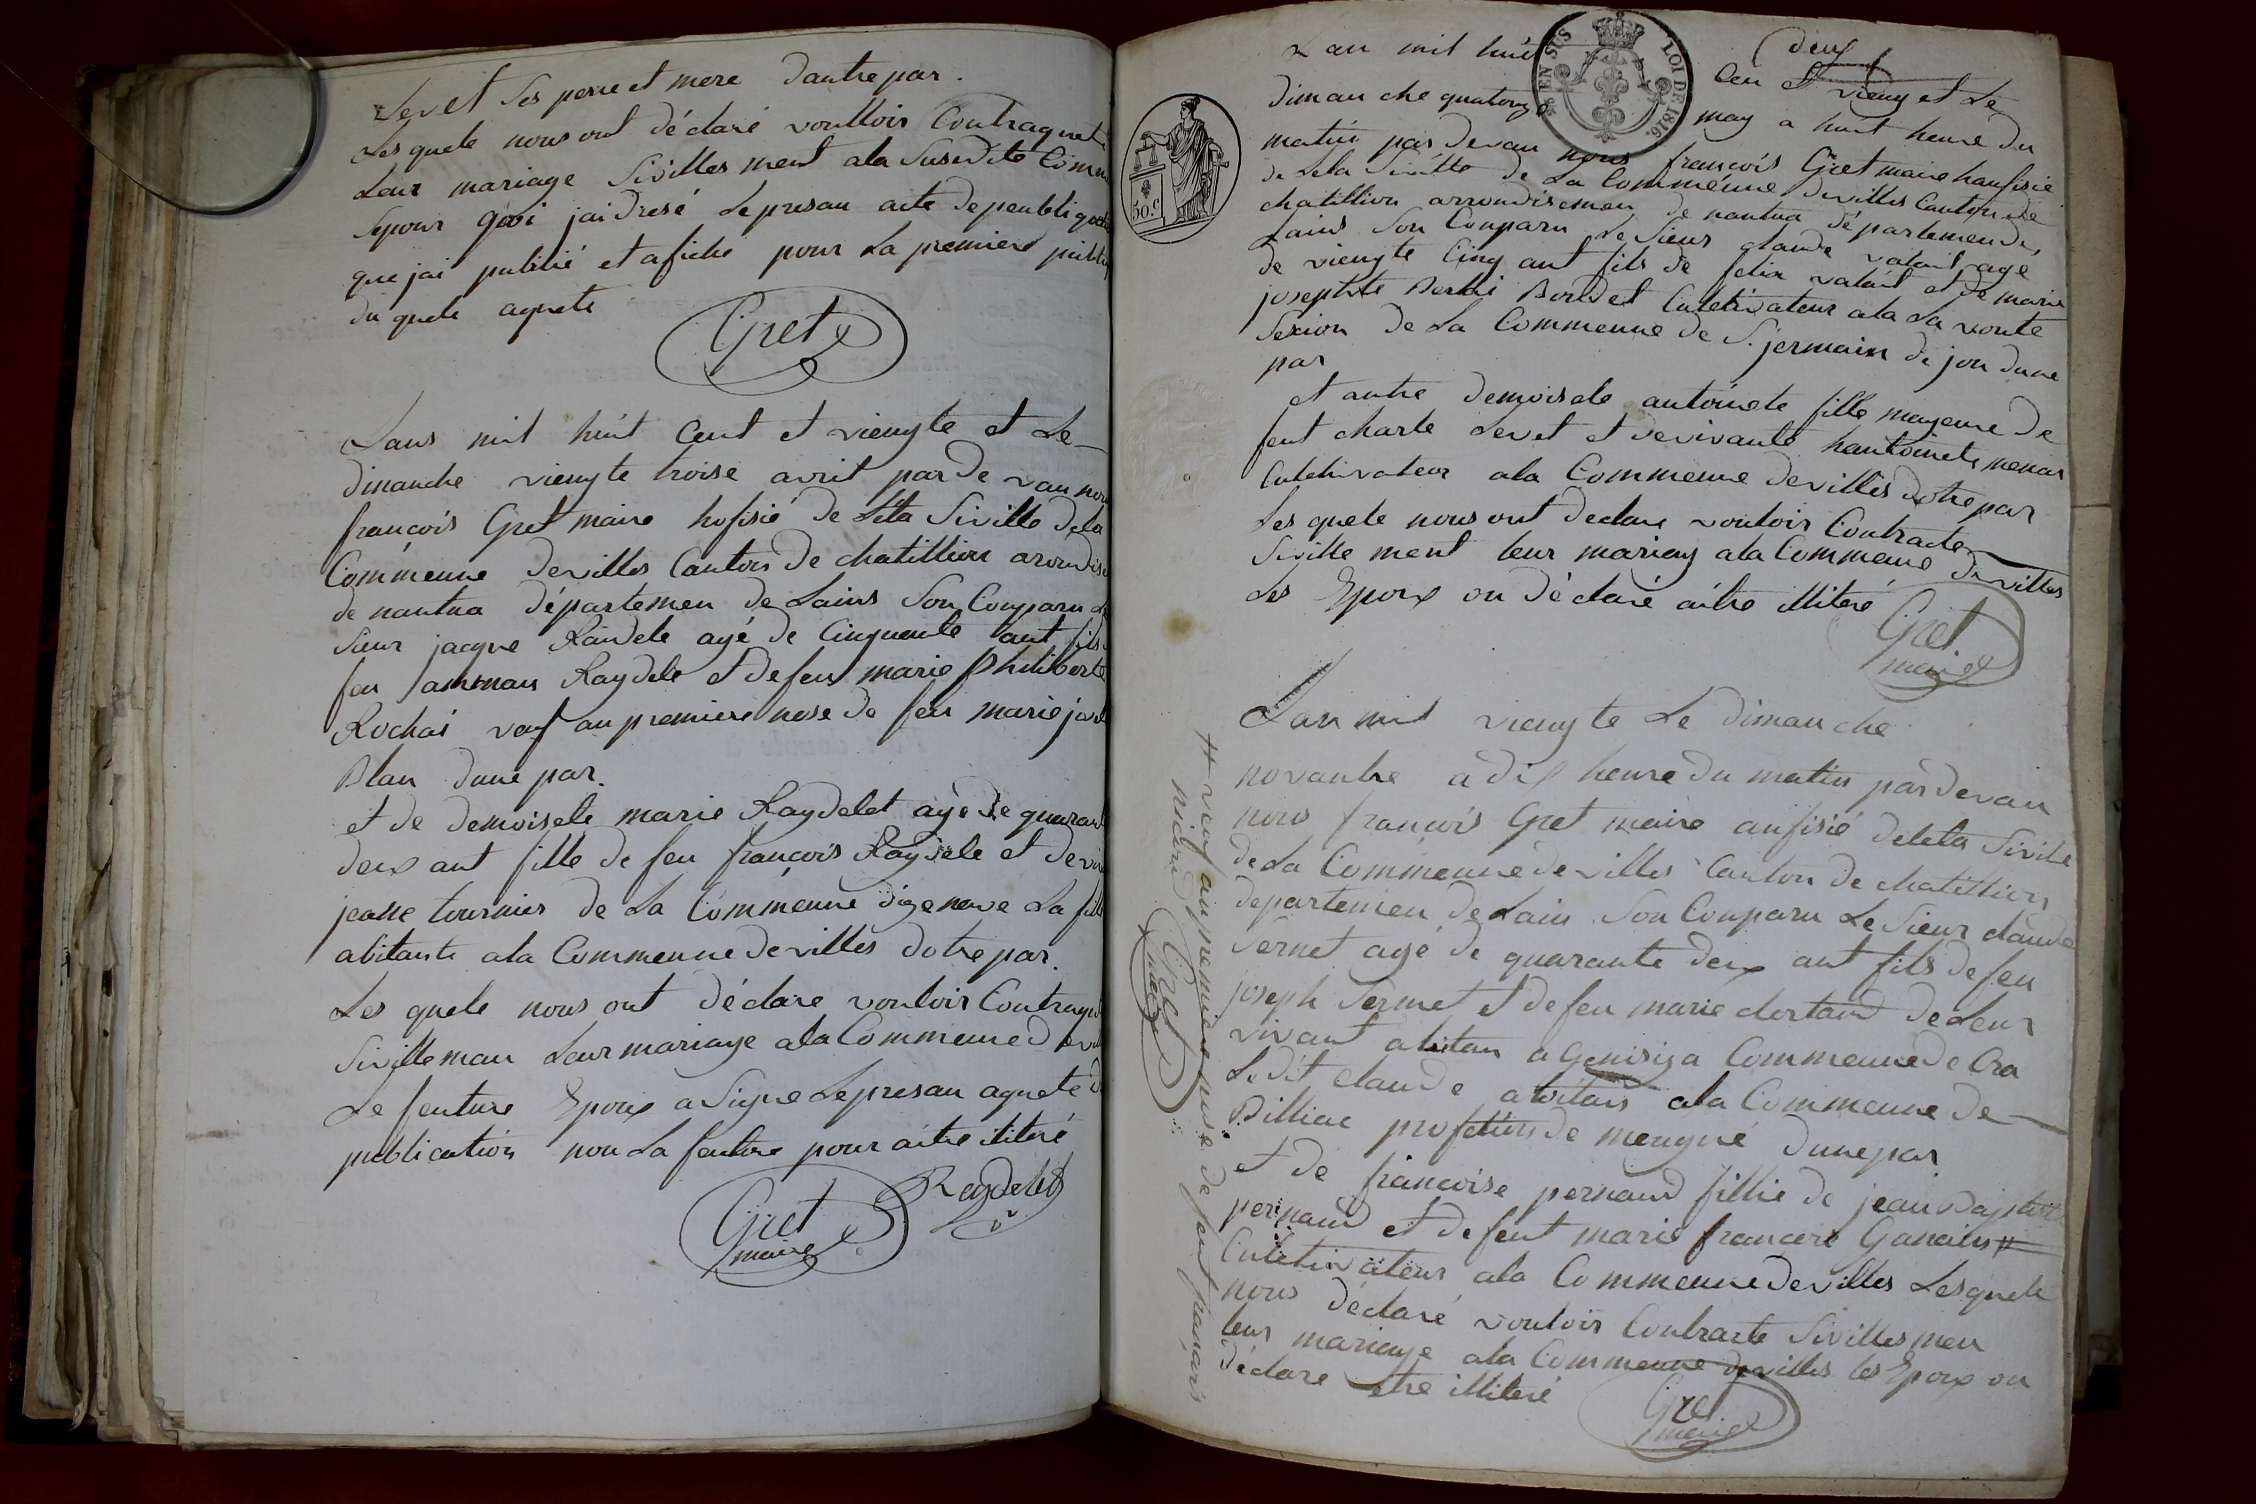 Levet Ses perre et mere dautre par.
Les quele nous ont déclaré voulloir Contraquete
Leur mariage Sivilles ment ala Susedite Comm
Sepour quoi jai dresé Lepresan acte depeubliqua
que jai publié et afiché pour La premiere publi
du quele aquete
Gret
Lans mil huit Cent et viengte et Le
dimanche viengte troise avril par de vau nou
françois Gret maire hofisié de Léta Siville dela
Commeune devilles Canton de chatillion arondise
de nantua département de Lains Son Comparu Le
Sieur jacque Raidele agé de Cinquente ant fils
feu ammau Raydele et de feu marie philiberte
Rochai veuf au premiere nose de feu marie jose
Blan dune par.
et de demoisele marie Raydelet agé de quaran
deux ant fille de feu françois Raydele et de viv
jeane tournier de La Commeune digenave La fille
abitante ala Commeune devilles dotre par.
Les quele nous ont déclare vouloir Contraque
Siville man Leur mariage ala Commeune devi
Le feuture Epoux a Signe Lepresan aquete d
publication non La feuture pour aitre iliteré
Raydelet
Gret
maire
deux
Lan mil huit Cen et viengt et Le
dimanche quatorze may a huit heure du
matin par devan nous françois Gret maire haufisié
de Leta Siville de La Commeunne devilles Canton de
chatillion arrondisemen de nantua département de
Lains Son Comparu Le Sieur glaude valant agé
de viengte Cinq ant fils de felix valant et de marie
josephte Berthi Bordet Culetivateur ala La voute
Sexion de La Commeune de S. jermain di jou dune
par
et autre demoisele antoinete fille mageure de
feut charle Levet et devivante hantoinete menar
Culetivateur ala Commeune devilles dotre par
Les quele nous ont declare vouloir Contracte
Siville ment leur mariag ala Commeune devilles
Les Epoux on déclaré aitre illiteré
Gret
maire
Lan mil viengte Le dimanche
novanbre à dix heure du matin par devan
nous françois Gret maire aufisié deleta Sivile
de La Commeune devilles Canton de chatillion
departemen de Lain Son Comparu Le Sieur claude
Sernet agé de quarante deux ant fils de feu
joseph Sermet et de feu marie dortand de Leur
vivant abitan a Genisiza Commeune de Cra
Ledit claude abitans ala Commeune de
Billiac profetion de meugnié dune par
et de francoise pernaud fillie de jean Baptiste
pernaud et de feut marie francoise Ganain #
Culetivateur ala Commeune devilles Lesquele
nous déclaré vouloir Contracte Sivilles men
leur mariage ala Commeune devilles les Epoux on
déclare etre illiteré
Gret
maire
# veuf au premiere nose de feut françois
nicoud
Gret
maire
50.c
EN SUS
LOI DE 1816.